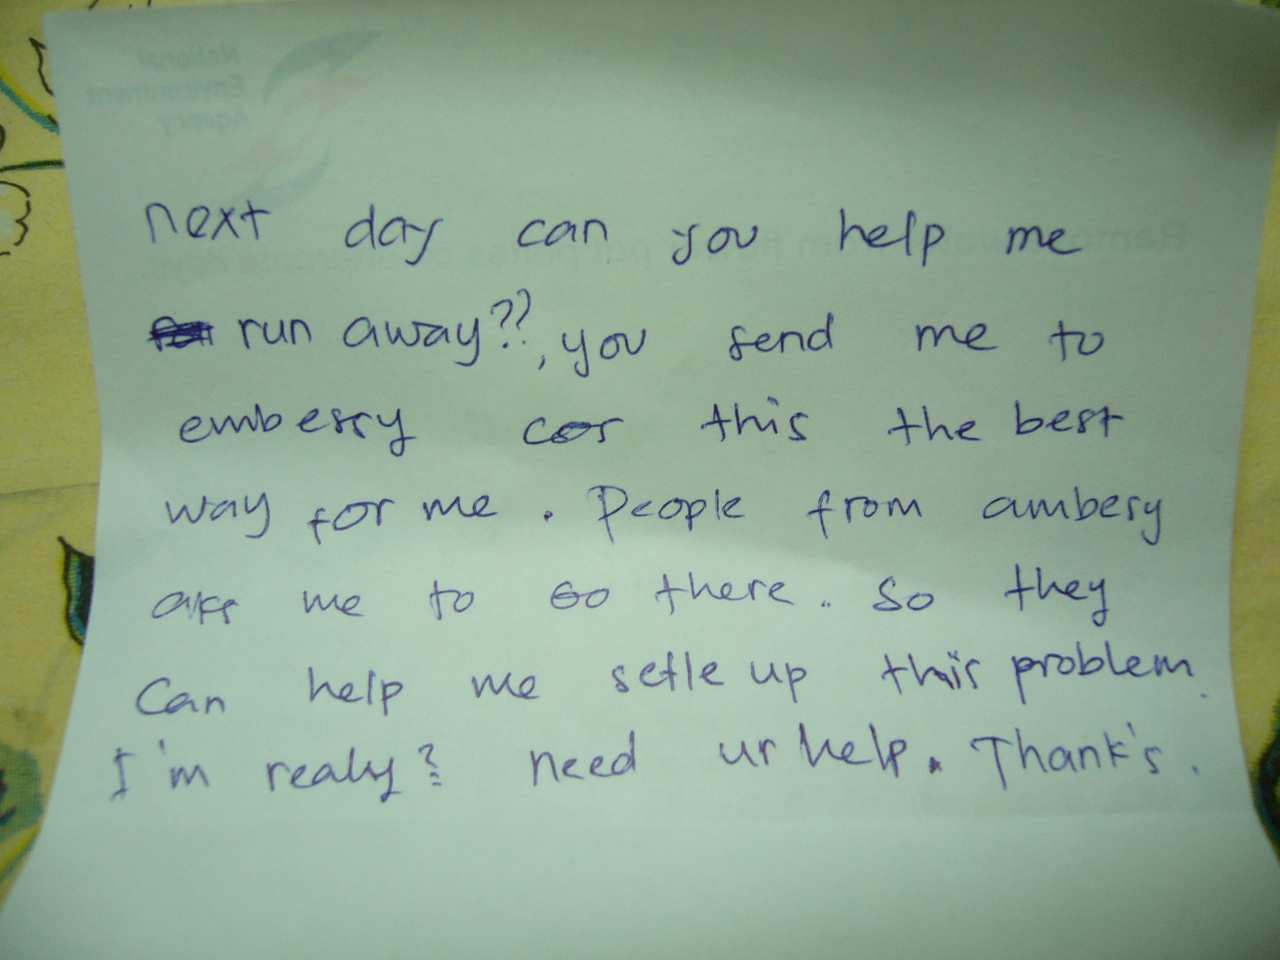 National
Environment
Agency
next day can you help me
run away??, you send me to
embessy cos this the best
way for me. People from ambesy
ask me to go there.. So they
Can help me setle up this problem.
I'm realy? need ur help. Thank's.